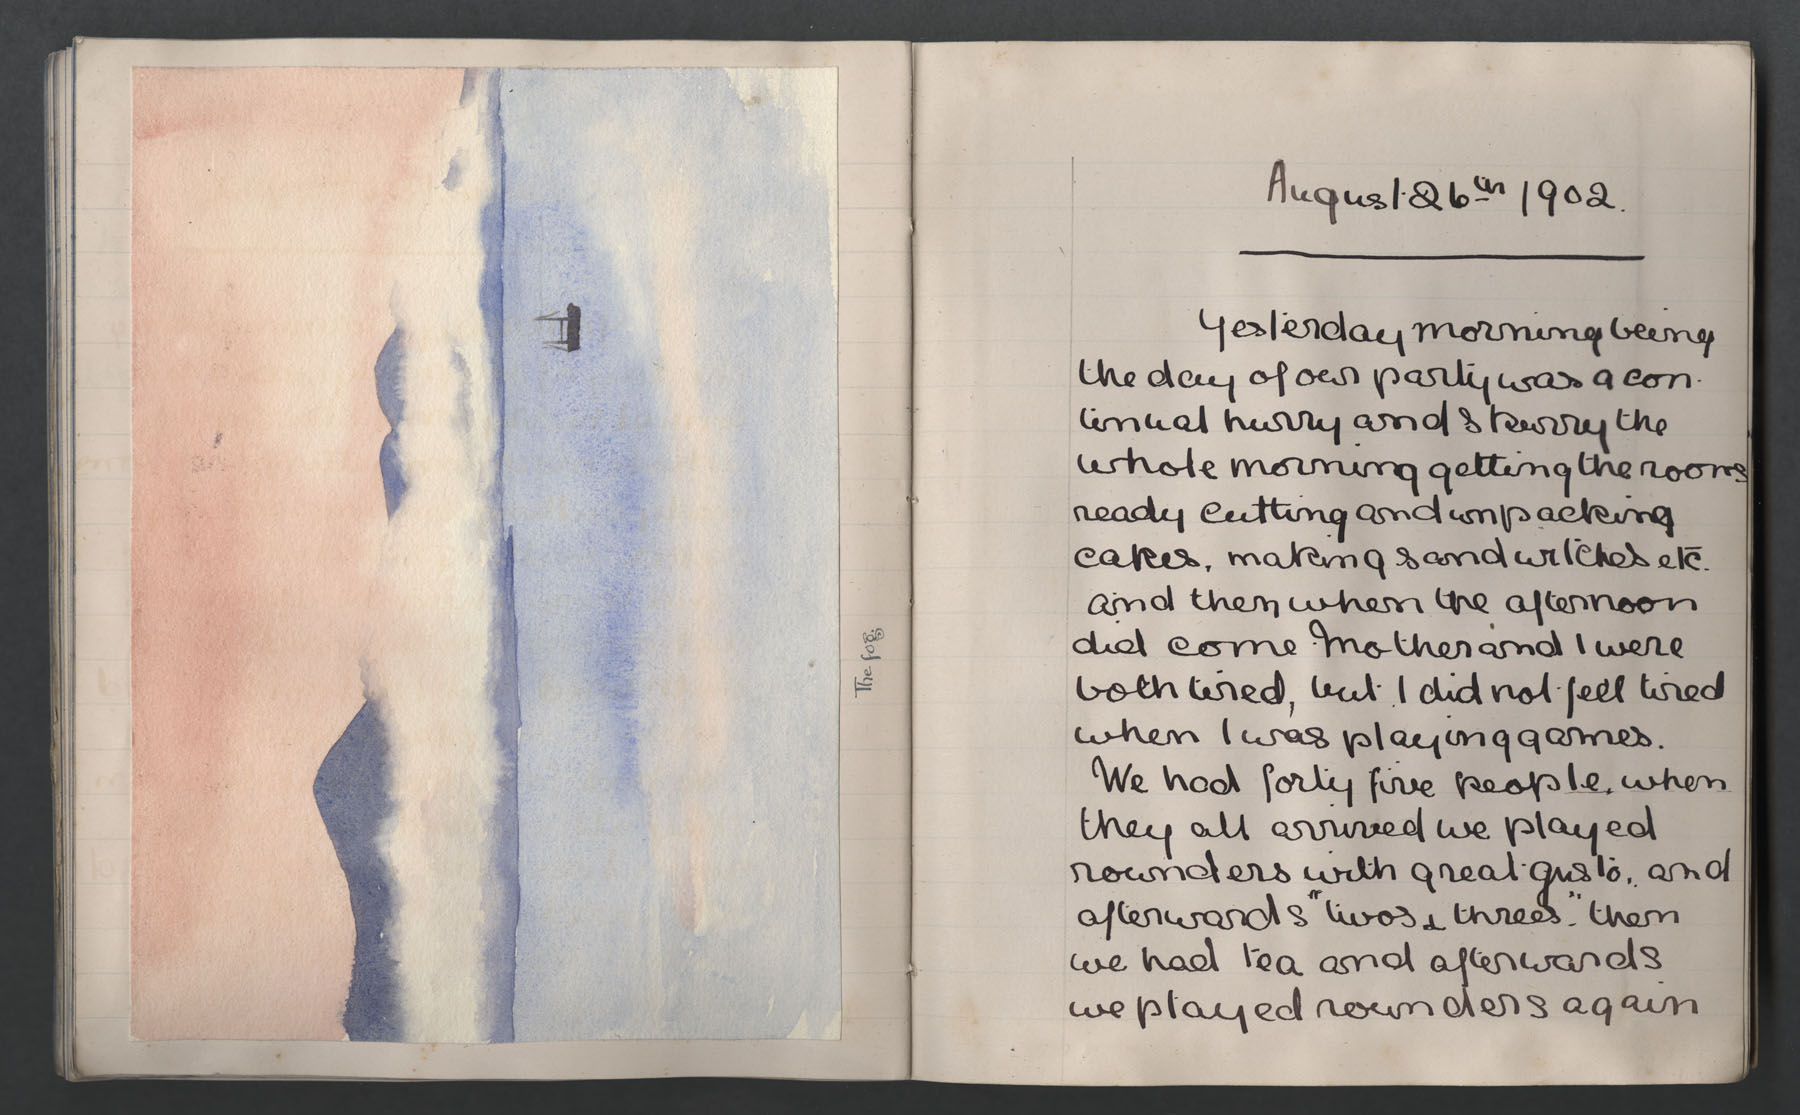 The fog.
August 26th 1902.
Yesterday morning being
the day of our party was a con-
tinual hurry and skurry the
whole morning getting the rooms
ready cutting and unpacking
cakes, making sandwitches etc.
and then when the afternoon
did come Mother and I were
both tired, but I did not feel tired
when I was playing games.
We had forty five people, when
they all arrived we played
rounders with great gusto, and
afterwards "twos & threes". then
we had tea and afterwards
we played rounders again